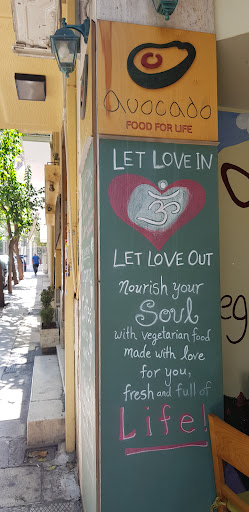 avocado
FOOD FOR LIFE
LET LOVE IN
ॐ
LET LOVE OUT
nourish your
Soul
with vegetarian food
made with love
for you,
fresh and full of
Life!